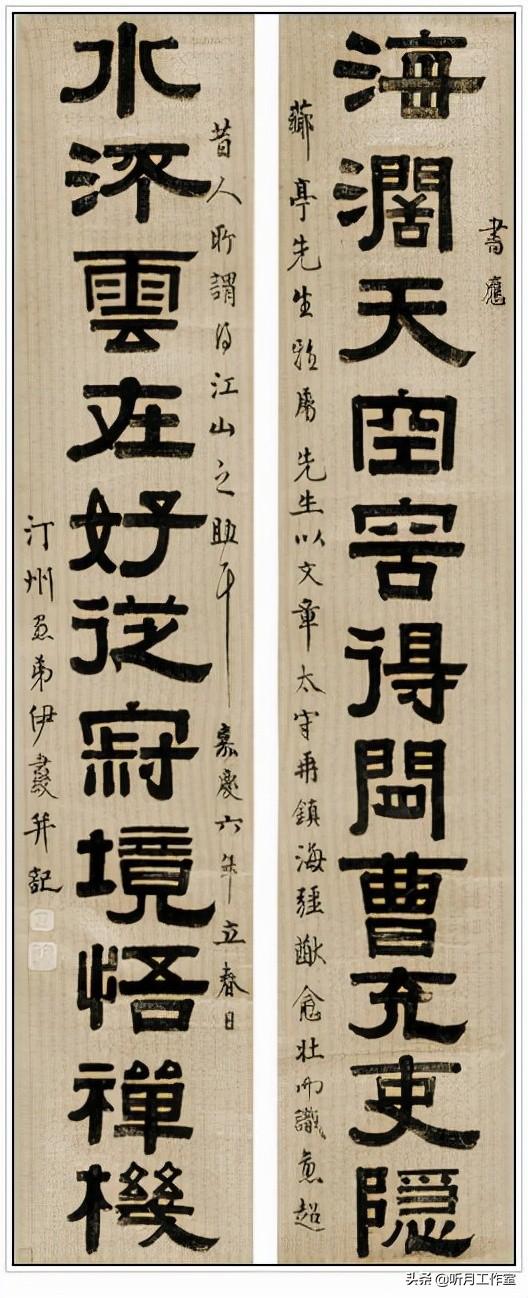 書應
海濶天空容得閒曹充吏隱
薌亭先生雅屬先生以文章太守再鎮海疆猷愈壯而識愈超
昔人所謂得江山之助乎嘉慶六年立春日
水流雲在好從寂境悟禪機
汀州愚弟伊秉綬并記
头条 @听月工作室